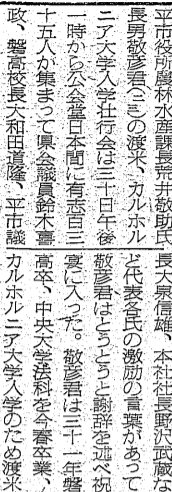 平市役所農林水産課長荒井敬助氏
長男敬彦君(二三)の渡米、カルホル
ニア大学入学壮行会は三十日午後
一時から公会堂日本間に有志百三
十五人が集まって県会議員鈴木喜
政、磐高校長大和田道隆、平市議
長大泉信雄、本社社長野沢武蔵な
ど代表各氏の激励の言葉があって
敬彦君はとうとうと謝辞を述べ祝
宴に入った。敬彦君は三十一年磐
高卒、中央大学法科を今春卒業、
カルホルニア大学入学のため渡米